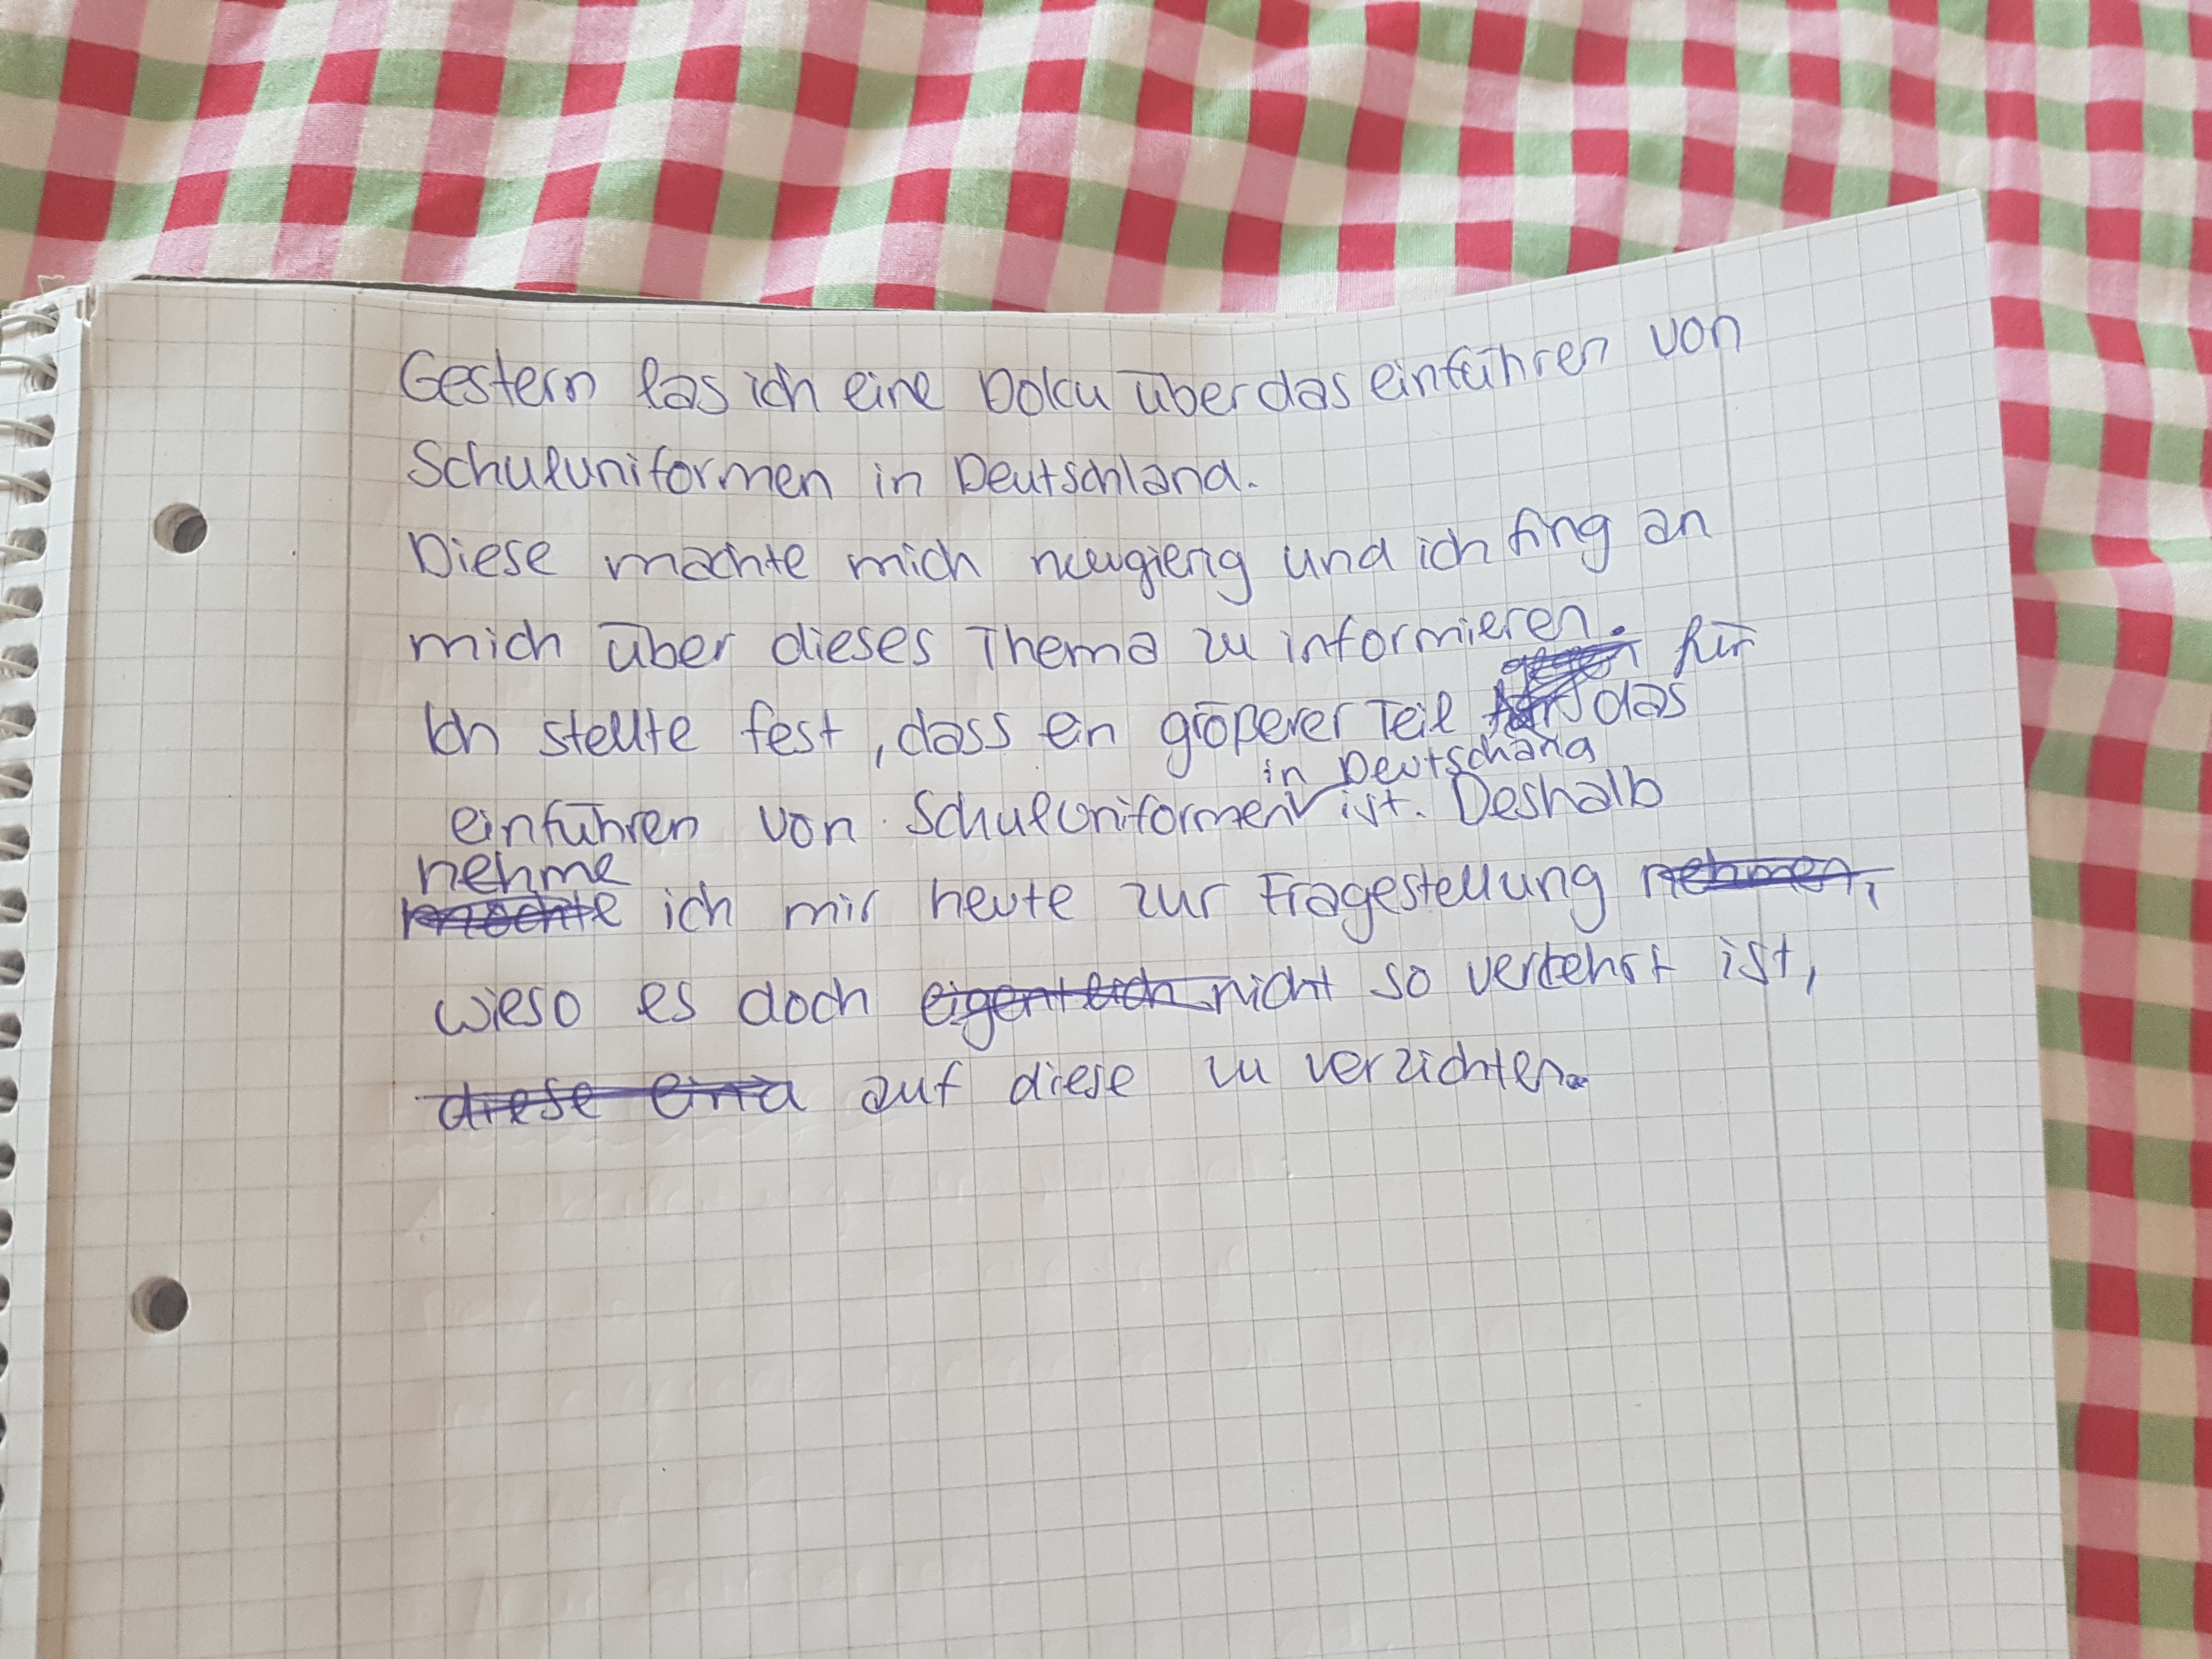 Gestern las ich eine Doku über das einführen von
Schuluniformen in Deutschland.
Diese machte mich neugierig und ich fing an
mich über dieses Thema zu informieren.
gegen für
Ich stellte fest, dass ein größerer Teil für das
in Deutschand
einführen von Schuluniformen ist. Deshalb
nehme
möchte ich mir heute zur Fragestellung nehmen,
wieso es doch eigentlich nicht so verkehrt ist,
diese eina auf diese zu verzichten.